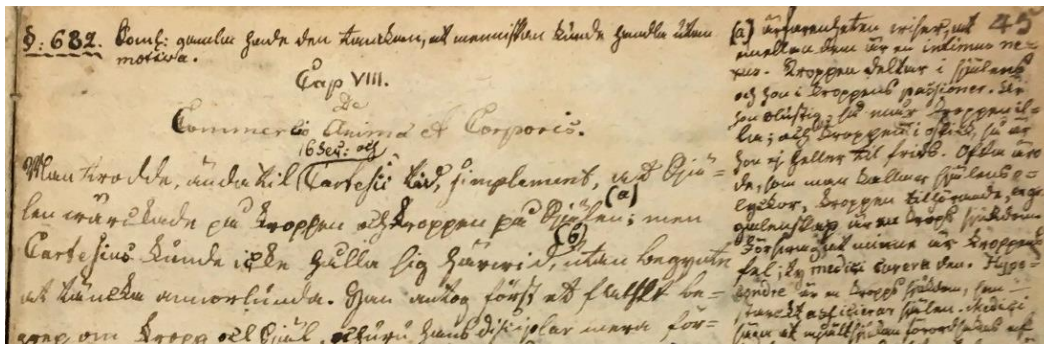 §: 682. Conf: gamla hade den tanckan, at menniskan kunde handla utan
motiva.
Cap VIII.
De
Commercio Animæ et Corporis.
16 Seu: och
Man trodde, ända til Cartesii tid, simplement, at Själ-
len wärckade på kroppen och kroppen på Själen; (a) men
Cartesius kunde icke hålla sig härwid, (b) utan begynte
at täncka annorlunda. Han antog först et falskt be-
grep om kropp och Själ, ehuru hans disciplar mera för-
45
(a) ärfarenheten wiser, at
emellan dem är en intimus ne-
xus. Kroppen deltar i själens
och hon i kroppens passioner. Är
hon olustig, så mår kroppen il-
la; och kroppen i olust, så är
hon ej heller til frids. Ofta äro
de, som man kallar själens
lyckor, kroppen tilhörande,
galenskap är en kropps sjukdom
Försvagat minne är kroppens
fel; ty medici curera den. Hypo-
condrie är en kropps sjukdom, som
starckt afficierar själen. Medici
säga at mjältsjukan förordsakas af